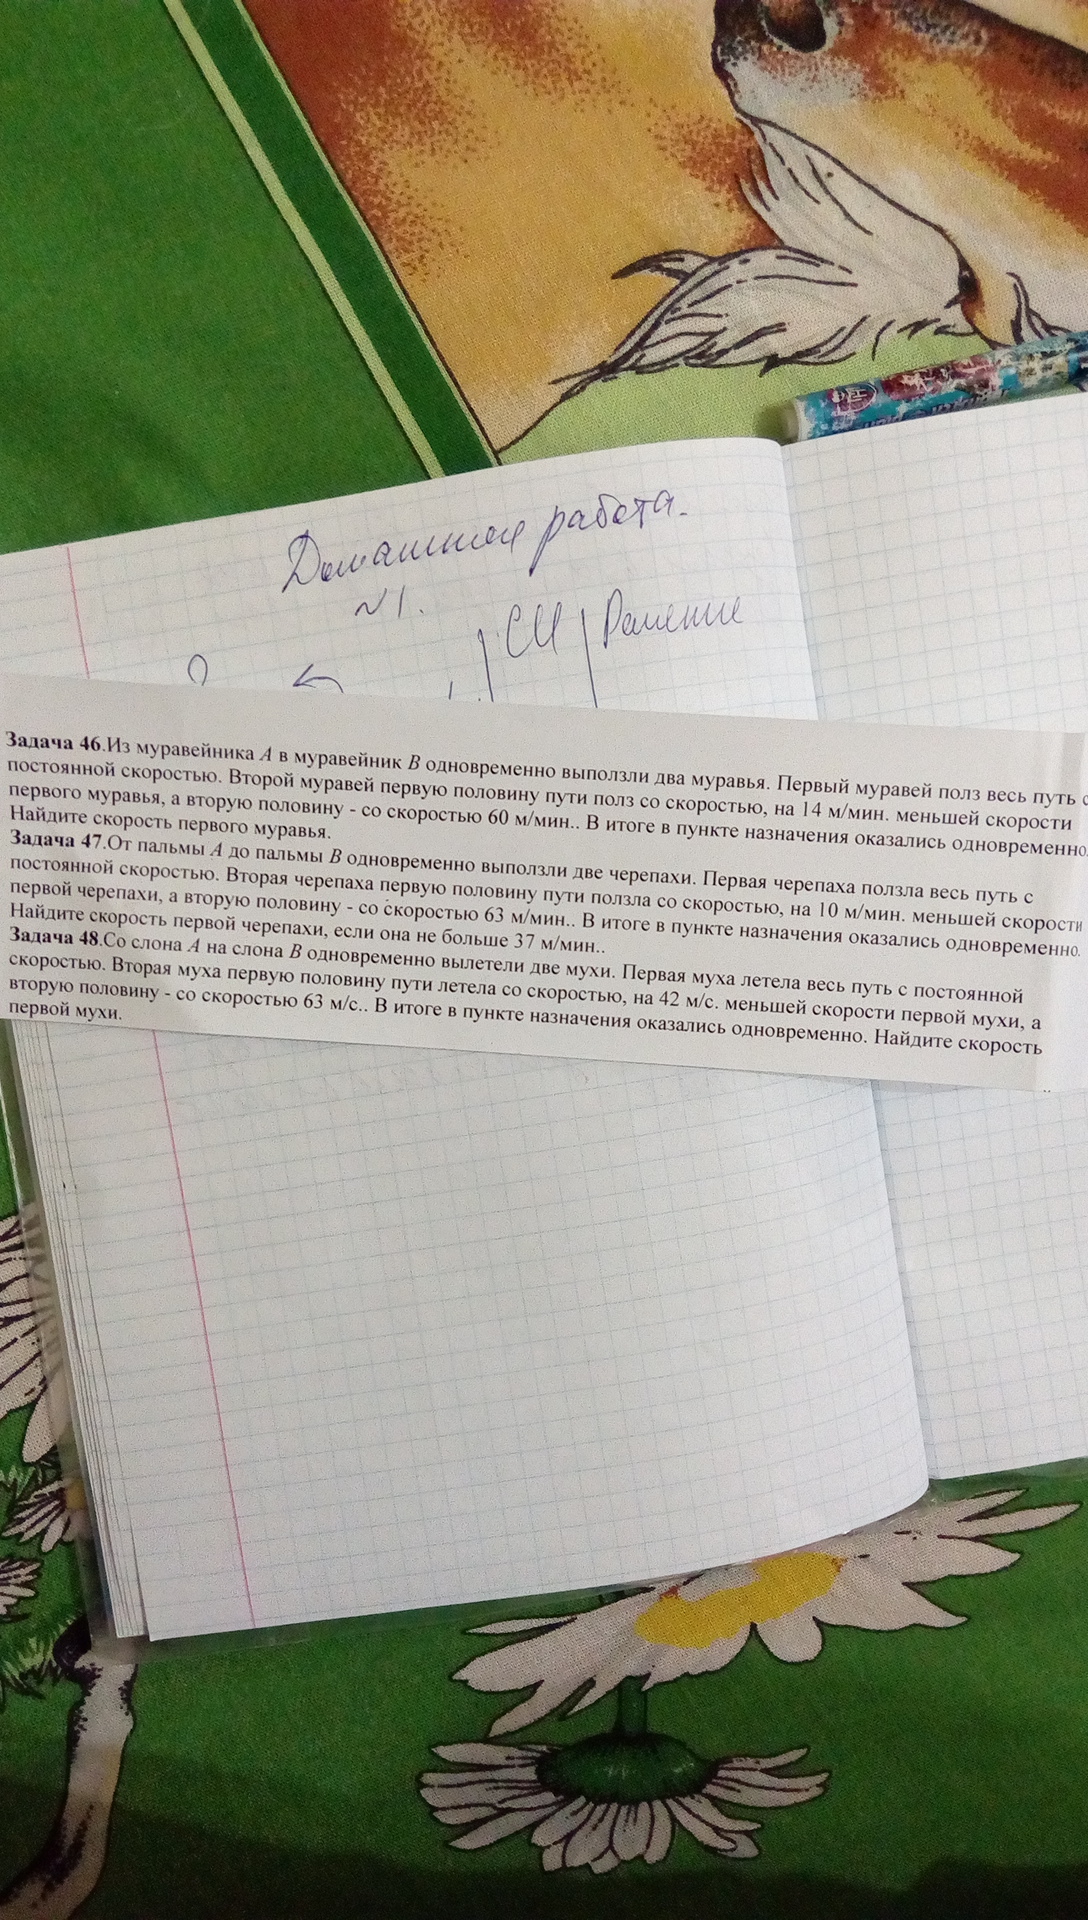 Домашняя работа.
№1.
СИ Решение
Задача 46.Из муравейника A в муравейник B одновременно выползли два муравья. Первый муравей полз весь путь с
постоянной скоростью. Второй муравей первую половину пути полз со скоростью, на 14 м/мин. меньшей скорости
первого муравья, а вторую половину - со скоростью 60 м/мин.. В итоге в пункте назначения оказались одновременно.
Найдите скорость первого муравья.
Задача 47.От пальмы A до пальмы B одновременно выползли две черепахи. Первая черепаха ползла весь путь с
постоянной скоростью. Вторая черепаха первую половину пути ползла со скоростью, на 10 м/мин. меньшей скорости
первой черепахи, а вторую половину - со скоростью 63 м/мин.. В итоге в пункте назначения оказались одновременно.
Найдите скорость первой черепахи, если она не больше 37 м/мин..
Задача 48.Со слона A на слона B одновременно вылетели две мухи. Первая муха летела весь путь с постоянной
скоростью. Вторая муха первую половину пути летела со скоростью, на 42 м/с. меньшей скорости первой мухи, а
вторую половину - со скоростью 63 м/с.. В итоге в пункте назначения оказались одновременно. Найдите скорость
первой мухи.